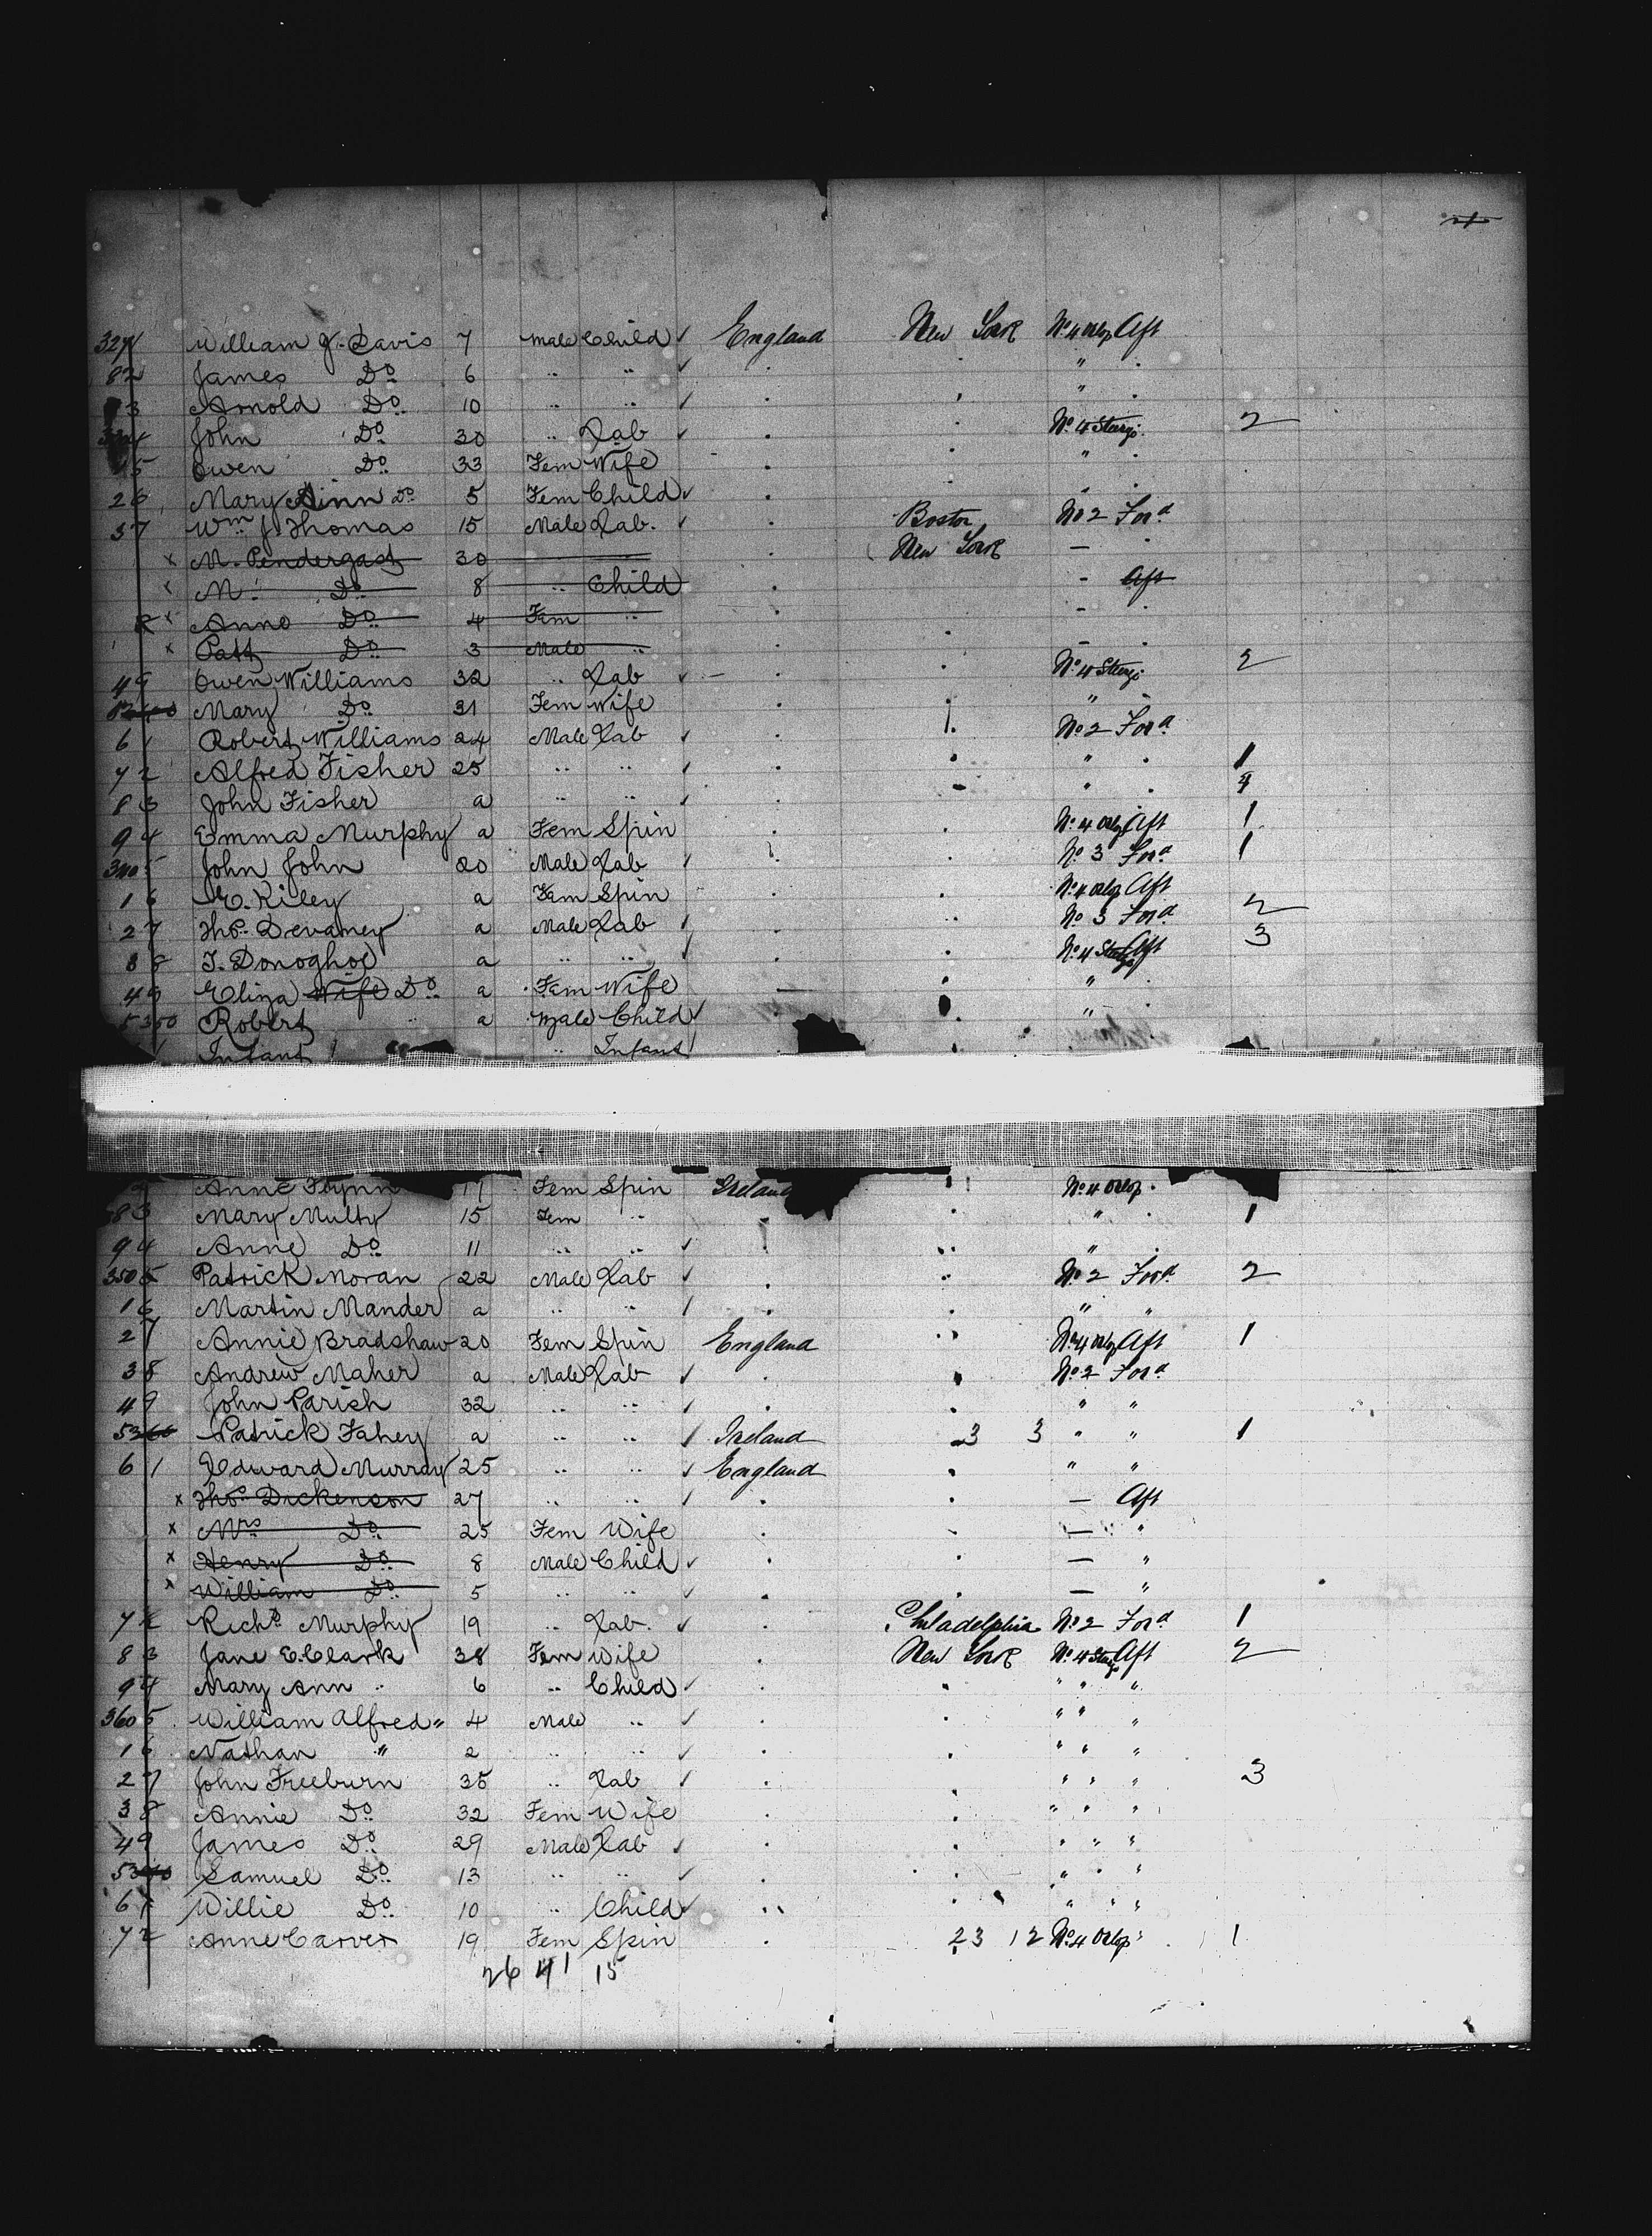 William J. Davis 7 Male Child ✓ England New York No 4 Orlop Aft
82 James Do 6 " " ✓ . "  .
3 Arnold Do 10 " " ✓ . . " .
John Do 30 " Lab ✓ . . No 4 Steerge 2
5 Owen Do 33 Fem Wife . . " .
26 Mary Ainn Do 5 Fem Child ✓ . . . .
37 Wm J Thomas 15 Male Lab. ✓ . Boston No 2 Ford
x M. Pendergast 30 . New York — .
x M. Do 8 " Child . - Aft
x Anne Do 4 Fem " . - .
x Patt Do 3 Male " . . -
49 Owen Williams 32 " Lab ✓ — . . No 4 Steerge 2
Mary Do 31 Fem Wife . " .
61 Robert Williams 24 Male Lab ✓ . . No 2 Ford
72 Alfred Fisher 25 " " ✓ . . " . 1
83 John Fisher a " " ✓ . - " .
94 Emma Murphy a Fem Spin . . No 4 Orlop Aft 1
3405 John John 20 Male Lab ✓ . No 3 Ford 1
16 E. Kiley a Fem Spin . . No 4 Orlop Aft
27 Thos. Devaney a Male Lab ✓ . " No 3 Ford 2
38 T. Donoghoe a " " ✓ . . No 4 Aft 3
49 Eliza Wife Do a Fem Wife . " .
5350 Robert a Male Child ✓ . "
Infant " Infant
Anne Flynn Fem Spin Ireland No 4 Orlop .
3 Mary Multy 15 Fem " . . " . 1
94 Anne Do 11 " " ✓ " .
3505 Patrick Moran 22 Male Lab ✓ . No 2 Ford 2
16 Martin Mander a " " ✓ . . " "
27 Annie Bradshaw 20 Fem Spin England No 4 Orlop Aft 1
38 Andrew Maher a Male Lab ✓ . . No 2 Ford
49 John Parish 32 " " ✓ . . " "
5360 Patrick Fahey a " " ✓ Ireland 3 3 " " 1
61 Edward Murray 25 " " ✓ England . " "
x Thos. Dickenson 27 " " ✓ . . — Aft
x Mrs Do 25 Fem Wife . . — "
x Henry Do 8 Male Child ✓ . . — "
x William Do 5 " " ✓ . . — "
72 Richd Murphy 19 " Lab. ✓ . Philadelphia No 2 Ford 1
83 Jane E. Clark 38 Fem Wife . New York No 4 Steerge Aft 2
94 Mary Ann " 6 " Child ✓ . . " " "
3605 William Alfred " 4 Male " ✓ . . " " "
16 Nathan " 2 " " ✓ . . " " "
27 John Freeburn 35 " Lab ✓ . . " " " 3
38 Annie Do 32 Fem Wife . . " " "
49 James Do 29 Male Lab ✓ . . " " "
Samuel Do 13 " " ✓ . . " " "
61 Willie Do 10 " Child ✓ " . " " "
72 Anne Carver 19 Fem Spin . 23 12 No 4 Orlop 1
26 41 15